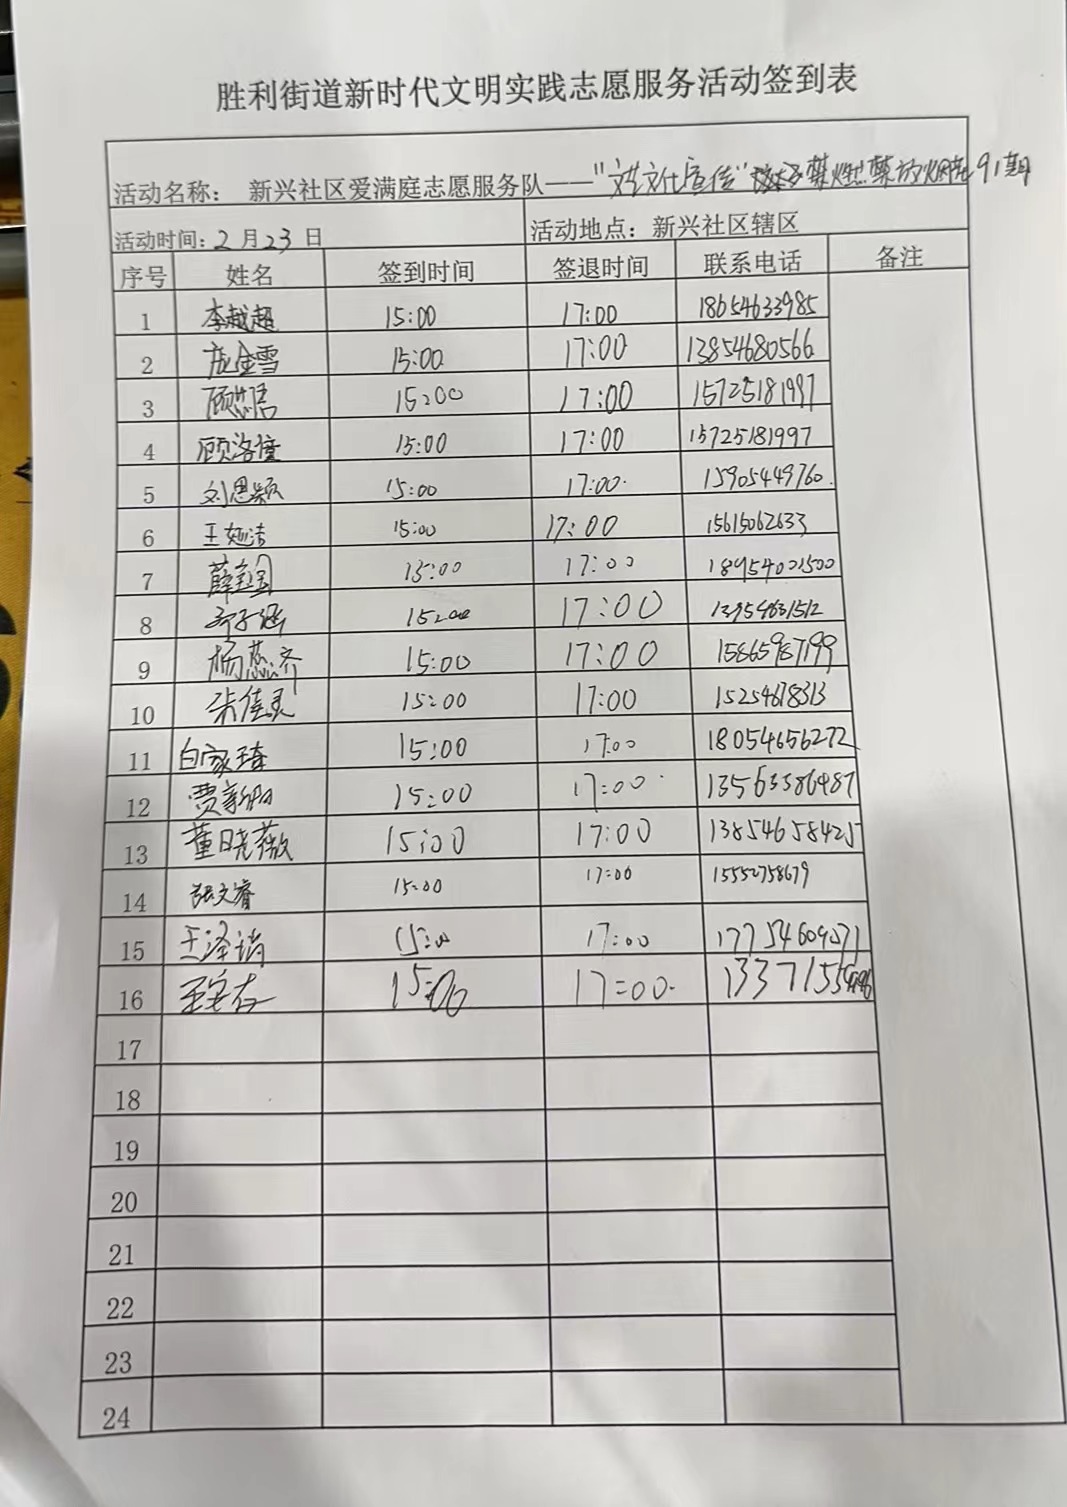 胜利街道新时代文明实践志愿服务活动签到表
活动名称： 新兴社区爱满庭志愿服务队——"文化宣传" 禁燃禁放烟花91期
活动时间：2月23日 活动地点：新兴社区辖区
序号 姓名 签到时间 签退时间 联系电话 备注
1 李越超 15:00 17:00 18654633985
2 庞金雪 15:00 17:00 13854680566
3 顾 15:00 17:00 15725181997
4 顾洛僮 15:00 17:00 15725181997
5 刘思颖 15:00 17:00 15905449760
6 王 洁 15:00 17:00 15615062633
7 薛 15:00 17:00 18954001500
8 子涵 15:00 17:00 13954631512
9 杨蕊齐 15:00 17:00 15865987199
10 朱佳灵 15:00 17:00 15254678313
11 白家琦 15:00 17:00 18054656272
12 贾新 15:00 17:00 13563386487
13 董晓薇 15:00 17:00 13854658425
14 张文睿 15:00 17:00 15552758679
15 王泽 15:00 17:00 17754609071
16 15:00 17:00
17
18
19
20
21
22
23
24